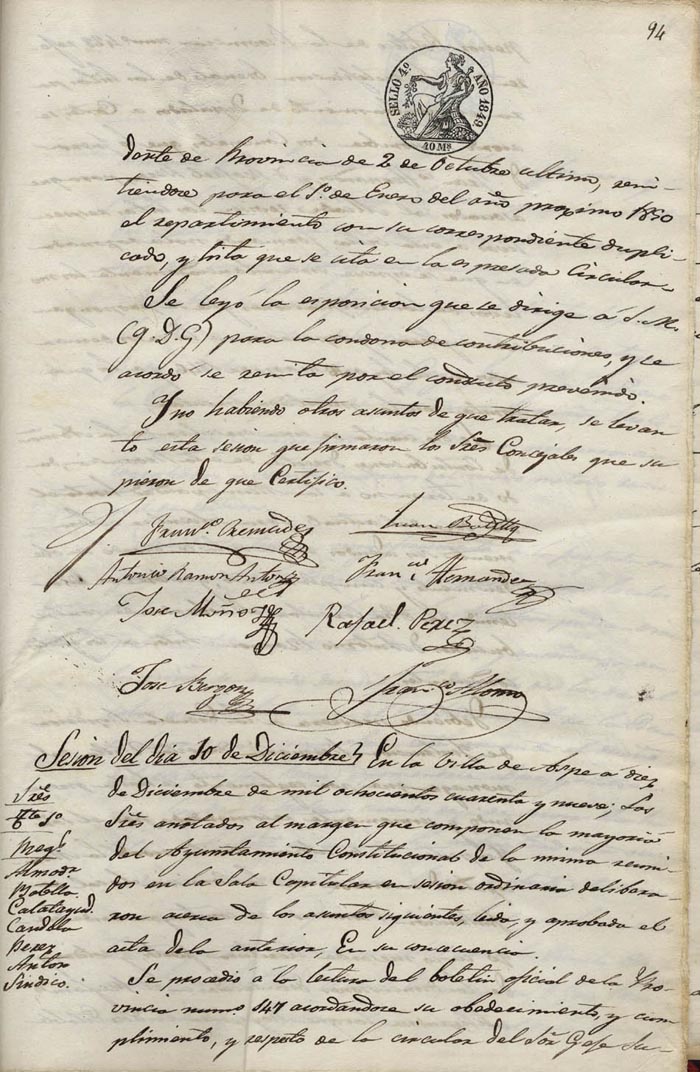 94
SELLO 4º AÑO 1849
40 Ms
de Provincia de 2 de Octubre ultimo, remi-
tiendose para el 1º de Enero del año proximo 1850
el repartimiento con su correspondiente dupli-
cado, y lista que se cita en la espresada Circular
Se leyó la esposicion que se dirige á S.M.
(q.D.G) para la condona de contribuciones, y se
acordó se remita por el conducto prevenido.
Y no habiendo otros asuntos de que tratar, se levan
tó esta sesion que firmaron los Sres Concejales que su
pieron de que Certifico.
Franco. Cremades
Juan
Antonio Ramon Antonio
Franco. Hernandez
Jose Muñoz
Rafael Perez
Jose
Franco Alonso
Sesion del dia 10 de Diciembre
En la Villa de Aspe a diez
de Diciembre de mil ochocientos cuarenta y nueve; Los
Sres anotados al margen que componen la mayoria
del Ayuntamiento Constitucional de la misma reuni-
dos en la Sala Capitular en sesion ordinaria delibera-
ron acerca de los asuntos siguientes, leida, y aprobada el
acta dela anterior, En su concecuencia.
Se procedio á la lectura del boletin oficial de la Pro-
vincia numo 147 acordandose su obedecimiento, y cum
plimiento, y respeto de la circular del Sor Gefe Su-
Sres
Tte 1º
Almodr
Botella
Calatayud.
Candela
Perez
Anton
Sindico.